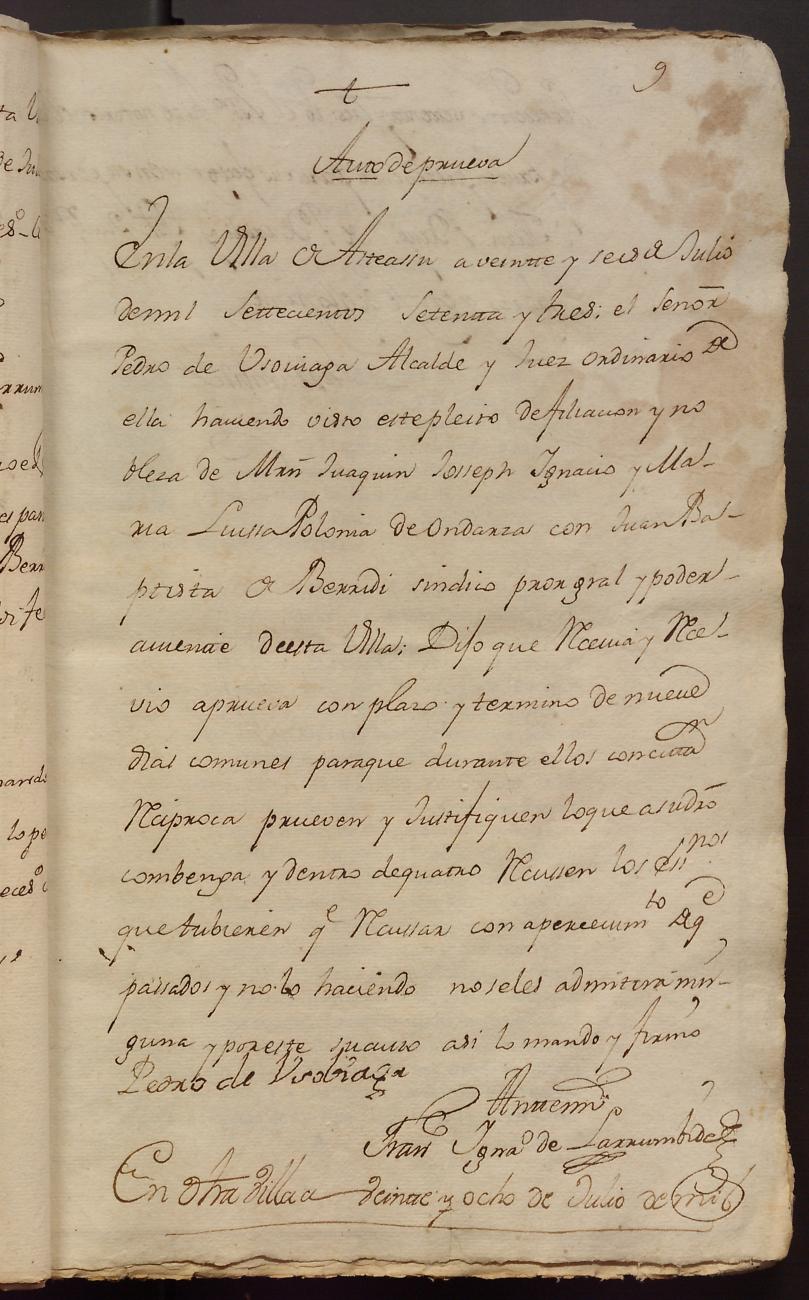 9
Auto de prueva
En la Villa de Arteassu a veintte y seis de Julio
de mil Settecientos Setentta y tres: el Señor
Pedro de Usoviaga Alcalde y Juez ordinario de
ella haviendo visto este pleito de filiacion y no
bleza de Mrn Juaquin Josseph Ignacio y Ma-
ria Luissa Polonia de Ondarza con Juan Ba-
ptista de Berridi sindico pror gral y poder-
aviente de esta Villa; Dijo que Recivia y Rec-
vio a prueva con plazo y termino de nueve
dias comunes para que durante ellos con citta on
Reciproca prueven y Justifiquen lo que a su dro
combenga y dentro de quatro Recussen los Essnos
que tubieren qe Recussar con apercevimto de qe
passados y no lo haciendo no se les admitira nin-
guna y por este su auto asi lo mando y firmo
Pedro de Usobiaga
Antte mi
Fran Ignao de Larrumbide
En dha Villa a Veintte y ocho de Julio de mil